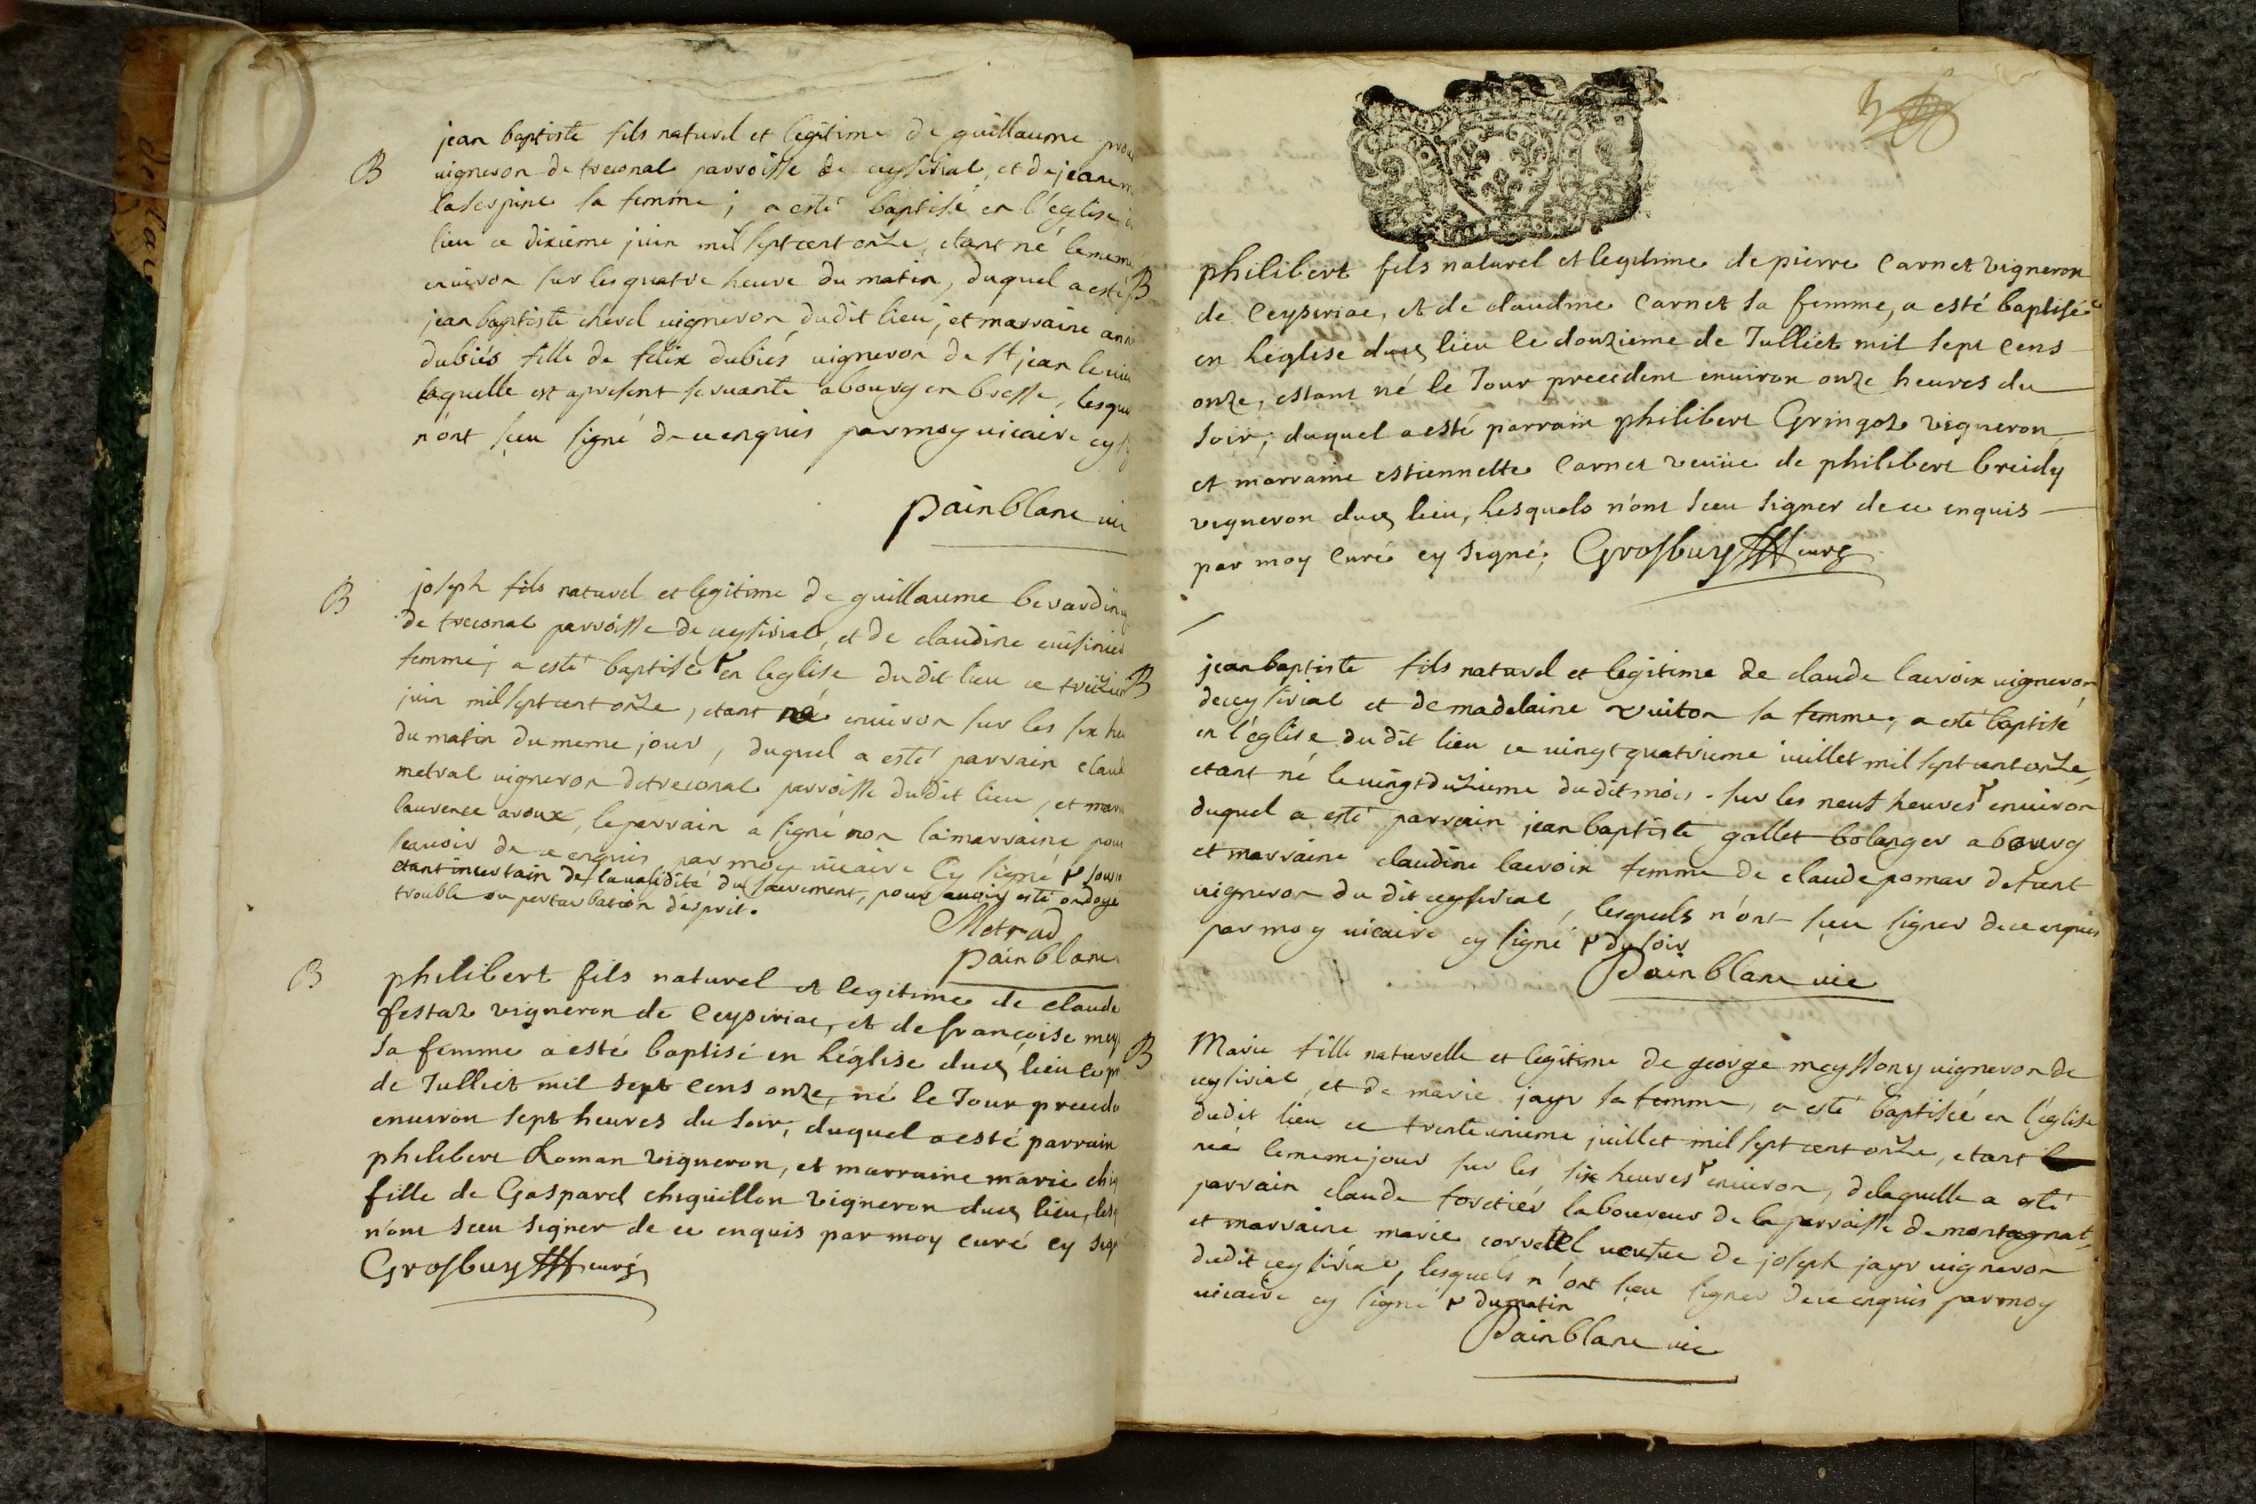 jean baptiste fils naturel et legitime de guillaume
B
vigneron de treconal parroisse de ceysirial, et de jeane
laserpine sa femme; a esté baptisé en l'eglise
lieu ce dixiéme juin mil sept cent onze, etant né le meme
environ sur les quatre heure du matin, duquel a esté
jean baptiste chevel vigneron du dit lieu, et marraine
dubiés fille de felix dubiés vigneron de st jean le
laquelle est apresent servante a bourg en bresse, lesque
n'ont sceu signé de ce enquis par moy vicaire cy
painblanc vic
B
joseph fils naturel et legitime de guillaume berardin
de treconal parroisse de ceysirial, et de claudine cuisinier
femme; a esté baptisé en leglise du dit lieu ce treizie
juin mil sept cent onze, etant né environ sur les six heu
du matin du meme jour, duquel a esté parrain claud
metral vigneron de treconal parroisse du dit lieu, et mar
laurence avoux, le parrain a signé non la marraine pour
scavoir de ce enquis par moy vicaire cy signé sous
etant incertain de la validité du sacrement, pour avoir esté ondoyé
trouble ou perturbation d'esprit.
Metrad
painblanc
B
philibert fils naturel et legitime de claude
festaz vigneron de Ceysiriac, et de françoise mey
sa femme a esté baptisé en l'église dud lieu le p
de Julliet mil sept cens onze, né le Jour precede
environ sept heures du soir, duquel a esté parrain
philibert Roman vigneron, et marraine marie chig
fille de Gaspard chiquillon vigneron dud lieu, lesq
n'ont sceu signer de ce enquis par moy curé cy sign
Grosbuy curé
B
philibert fils naturel et legitime de pierre Carnet vigneron
de Ceysiriac, et de claudine Carnet sa femme, a esté baptisé
en l'église dud lieu le douzieme de Julliet mil sept cens
onze, estant né le Jour precedent environ onze heures du
soir; duquel a esté parrain philibert Gringoz vigneron
et marraine estiennette Carnet veuve de philibert breidy
vigneron dud lieu, lesquels n'ont sceu signer de ce enquis
par moy curé cy signé; Grosbuy curé
B
jean baptiste fils naturel et legitime de claude lacroix vigneron
de ceysirial et de madelaine vuiton sa femme; a esté baptisé
en l'église du dit lieu ce vingt quatrieme juillet mil sept cent onze,
etant né le vingt duzieme du dit mois sur les neuf heures environ
duquel a esté parrain jean baptiste gallet bolanger a bourg
et marraine claudine lacroix femme de claude pomar defunt
vigneron du dit ceysirial, lesquels n'ont sceu signer de ce enquis
par moy vicaire cy signé du soir
Painblanc vic
B
Marie fille naturelle et legitime de george meyssony vigneron de
ceysirial, et de marie jayr sa femme, a esté baptisée en l'église
du dit lieu ce trente unieme juillet mil sept cent onze, etant
née le meme jour sur les six heures environ, de laquelle a esté
parrain claude foretier laboureur de la parroisse de montagnat,
et marraine marie corretel veufue de joseph jayr vigneron
du dit ceysirial, lesquels n'ont sceu signer de ce enquis par moy
vicaire cy signé du matin
Painblanc vic